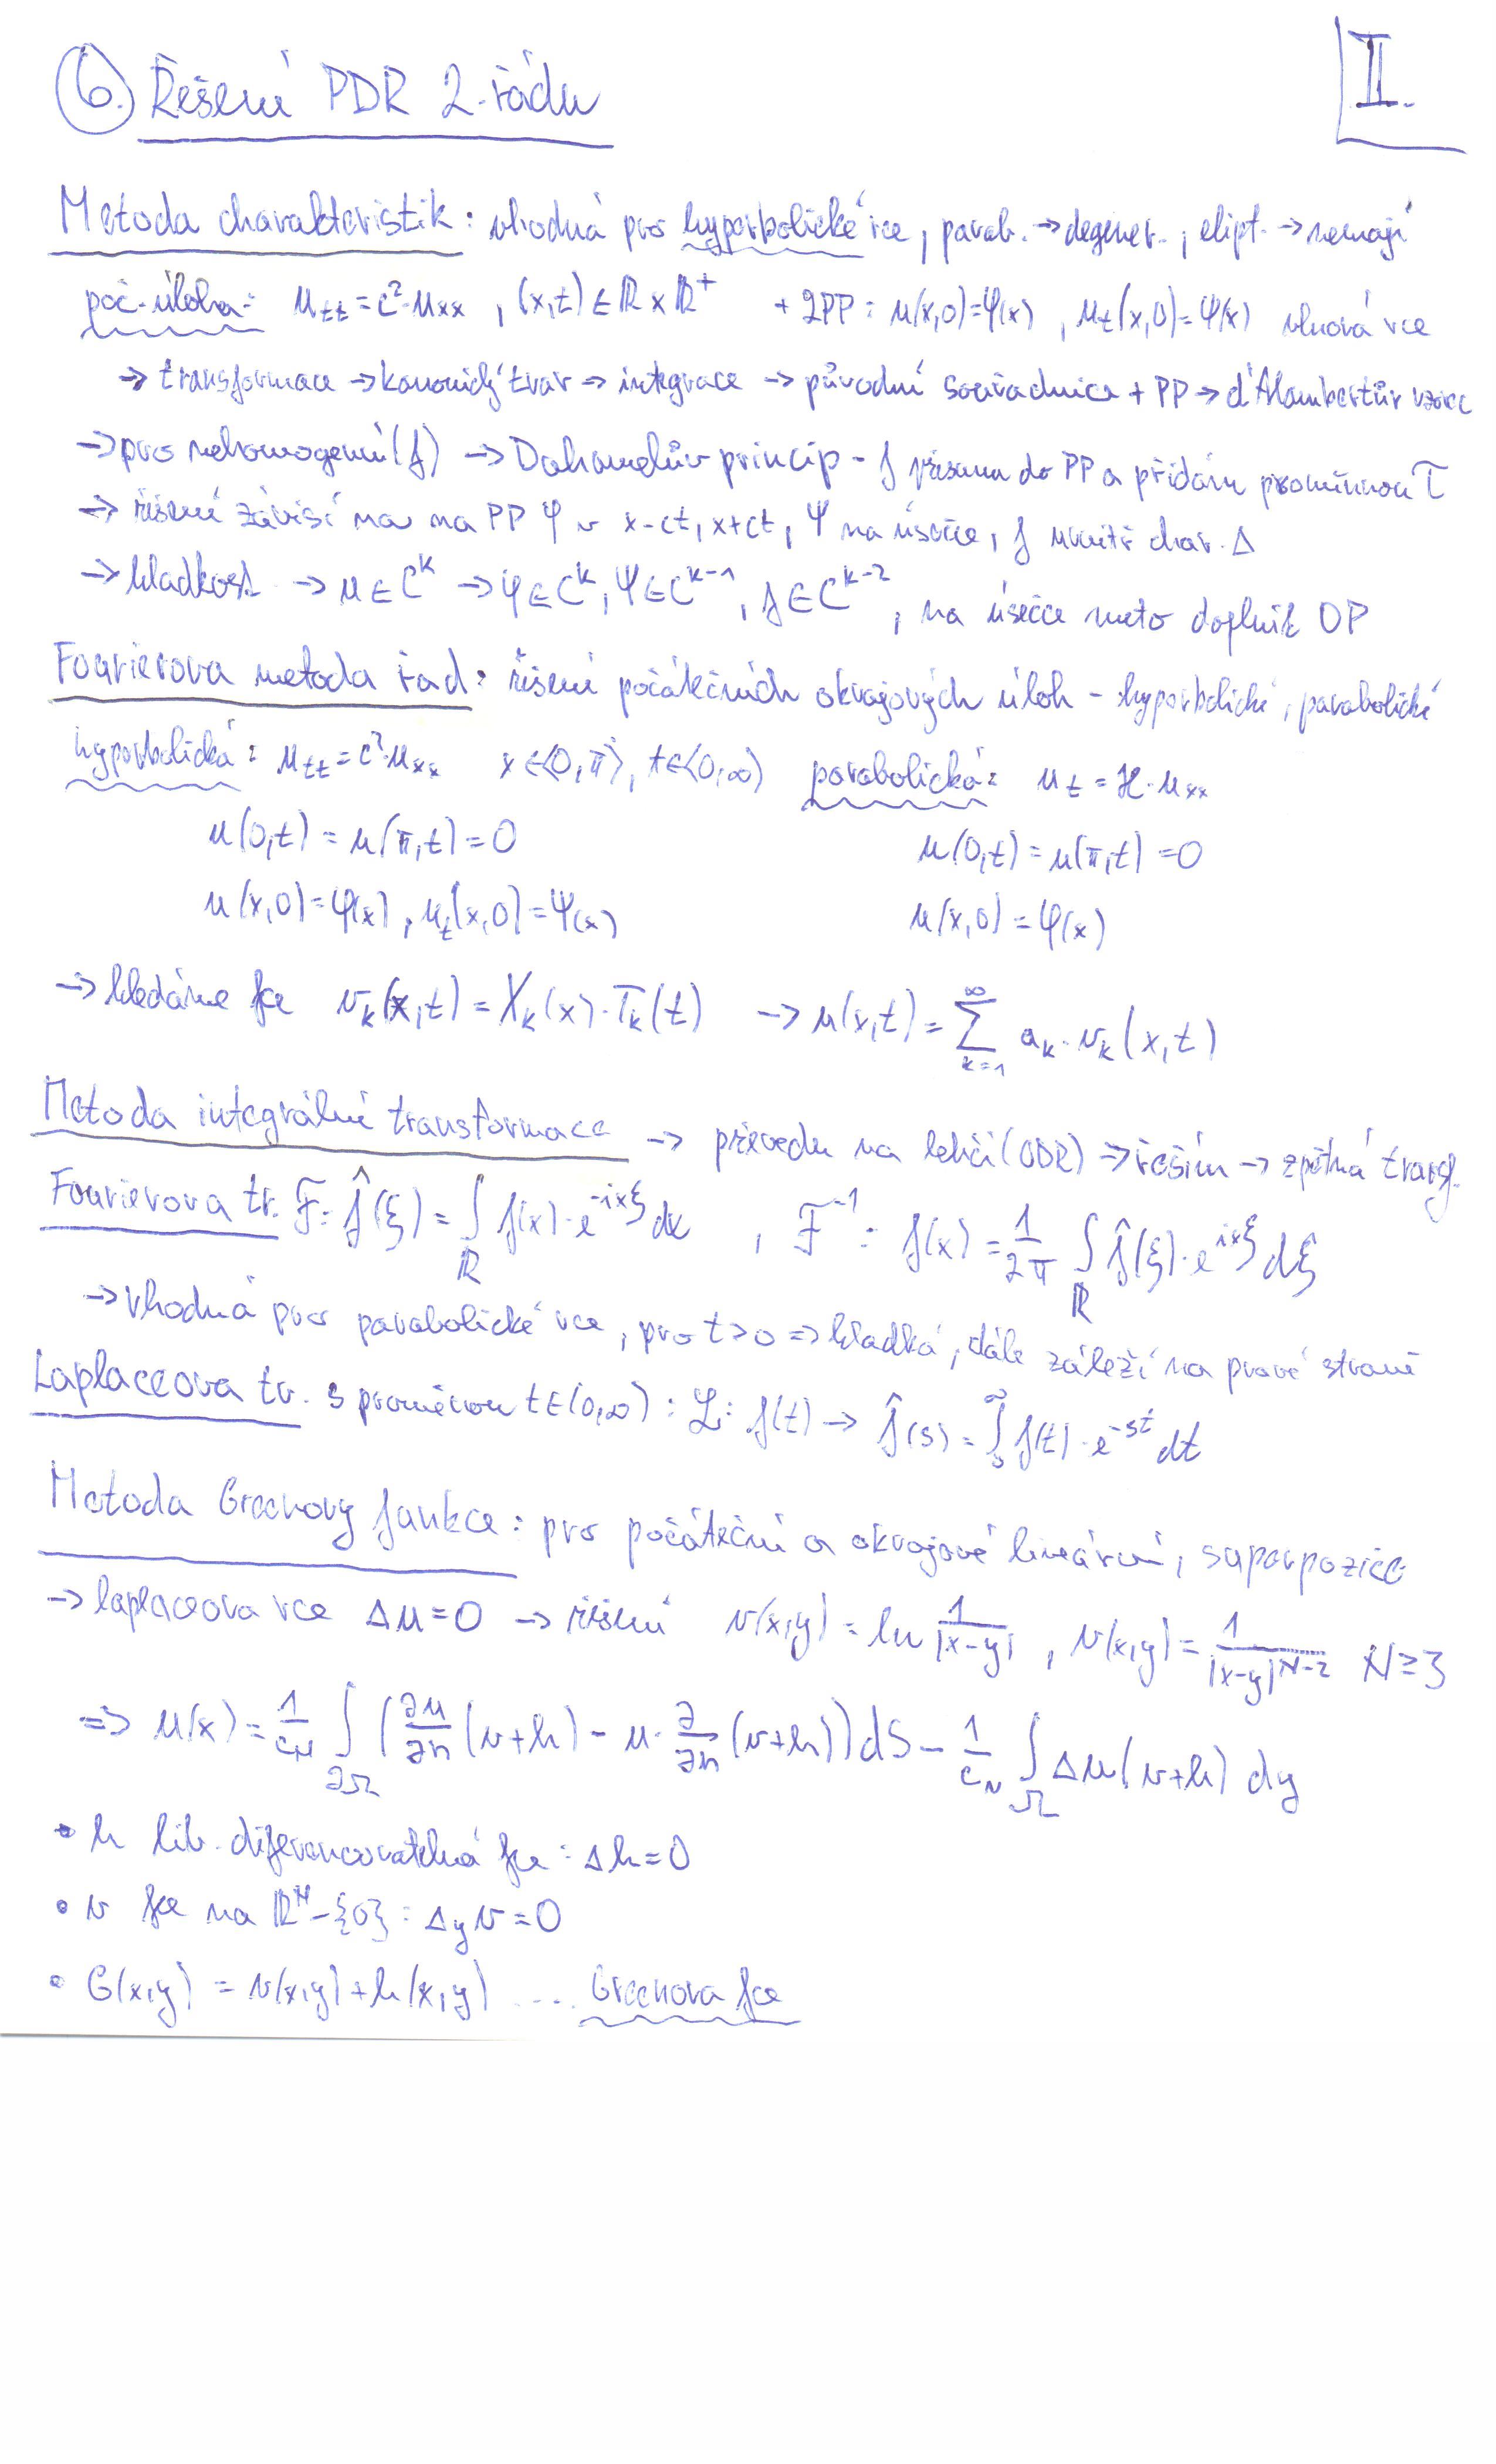 6. Řešení PDR 2. řádu
II.
Metoda charakteristik: vhodná pro hyperbolické rce, parab. → degener., elipt. → nemají
poč. úloha: u_tt = c²·u_xx, (x,t) ∈ ℝ × ℝ⁺ + 2PP: u(x,0)=φ(x), u_t(x,0)=ψ(x) vlnová rce
→ transformace → kanonický tvar → integrace → původní souřadnice + PP → d'Alambertův vzorec
→ pro nehomogenní (f) → Duhamelův princip - f přesunu do PP a přidám proměnnou τ
→ řešení závisí na na PP φ v x-ct, x+ct, ψ na úsečce, f uvnitř char. Δ
→ hladkost → u ∈ C^k → φ ∈ C^k, ψ ∈ C^(k-1), f ∈ C^(k-2), na úsečce nuto doplnit OP
Fourierova metoda řad: řešení počátečních okrajových úloh - hyperbolické, parabolické
hyperbolická: u_tt = c²·u_xx x ∈ ⟨0,π⟩, t ∈ ⟨0,∞) parabolická: u_t = ϰ·u_xx
u(0,t) = u(π,t) = 0 u(0,t) = u(π,t) = 0
u(x,0) = φ(x), u_t(x,0) = ψ(x) u(x,0) = φ(x)
→ hledáme fce v_k(x,t) = X_k(x)·T_k(t) → u(x,t) = ∑_{k=1}^∞ a_k·v_k(x,t)
Metoda integrální transformace → převedu na lehčí (ODR) → řeším → zpětná transf.
Fourierova tr. F: f̂(ξ) = ∫_ℝ f(x)·e^(-ixξ) dx, F⁻¹: f(x) = 1/2π ∫_ℝ f̂(ξ)·e^(ixξ) dξ
→ vhodná pro parabolické rce, pro t>0 ⇒ hladká, dále záleží na pravé straně
Laplaceova tr. s proměnou t ∈ (0,∞): L: f(t) → f̂(s) = ∫_0^∞ f(t)·e^(-st) dt
Metoda Greenovy funkce: pro počáteční a okrajové lineární, superpozice
→ laplaceova rce Δu = 0 → řešení v(x,y) = ln 1/|x-y|, v(x,y) = 1/|x-y|^(N-2) N ≥ 3
⇒ u(x) = 1/c_N ∫_∂Ω (∂u/∂n (v+h) - u·∂/∂n (v+h)) dS - 1/c_N ∫_Ω Δu(v+h) dy
• h lib. diferencovatelná fce: Δh = 0
• v fce na ℝ^N - {0}: Δ_y v = 0
• G(x,y) = v(x,y) + h(x,y) .... Greenova fce